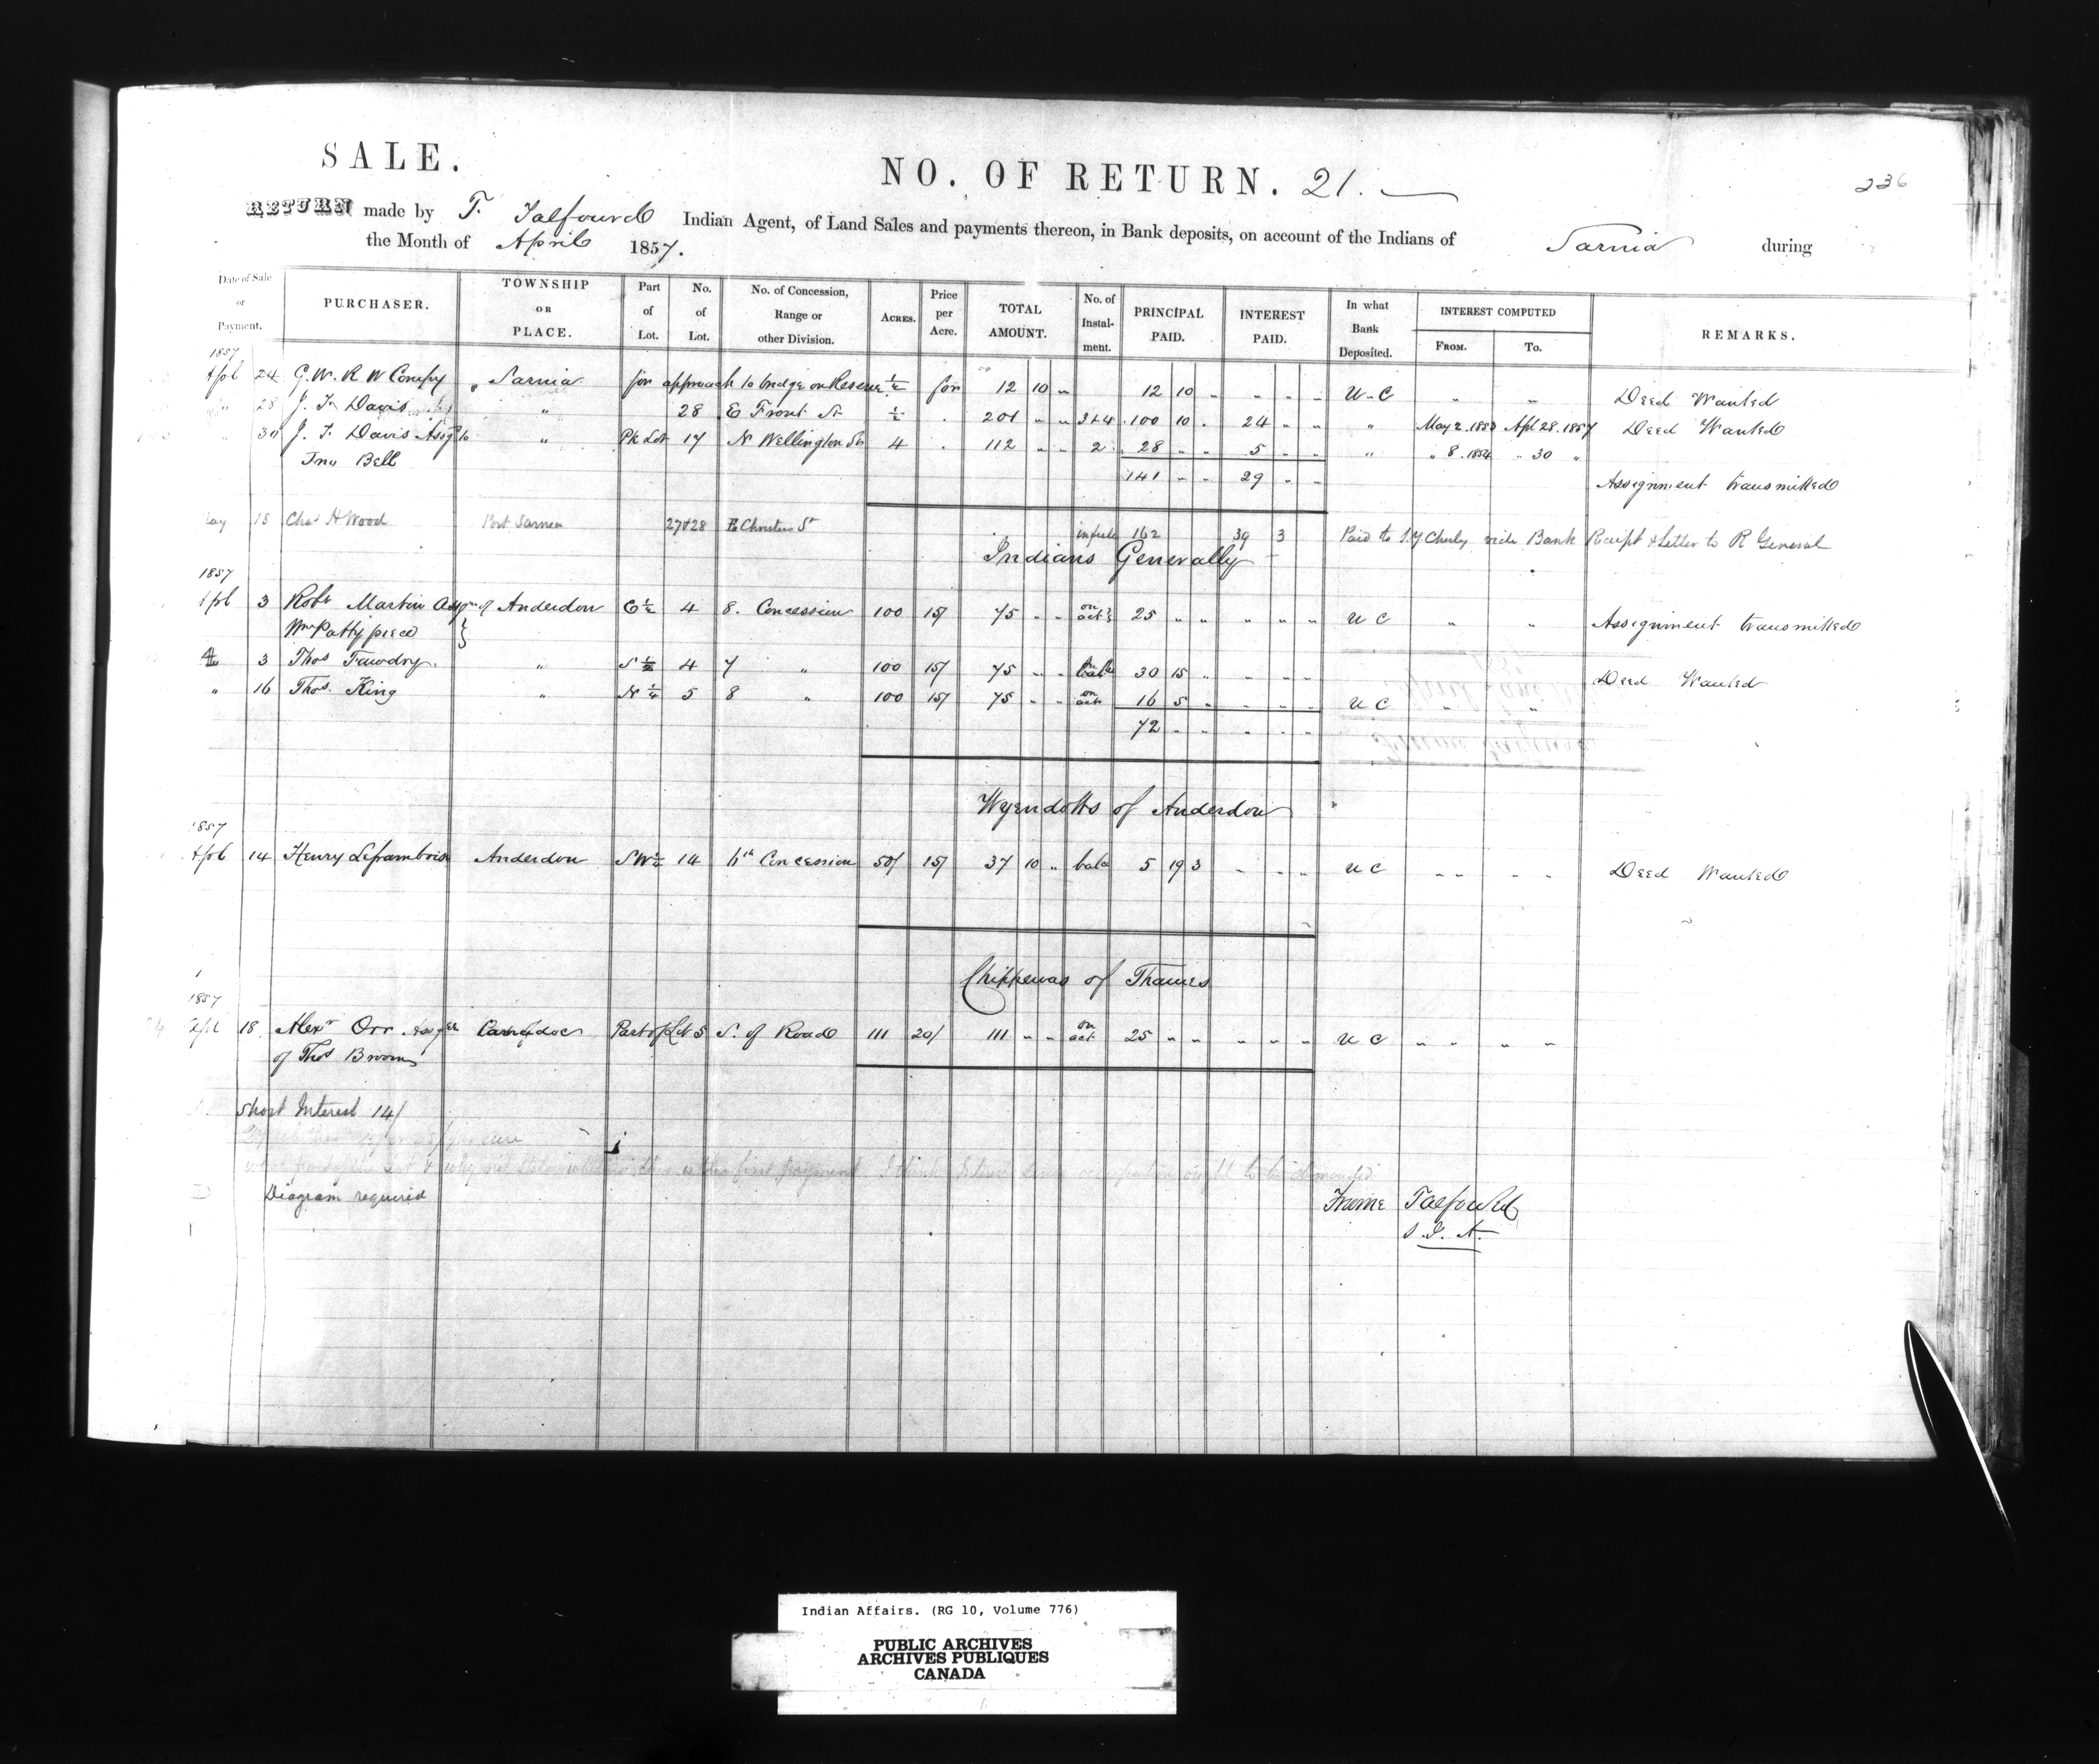 SALE.
NO. OF RETURN. 21.
236
RETURN made by T. Talfourd Indian Agent, of Land Sales and payments thereon, in Bank deposits, on account of the Indians of Sarnia during
the Month of April 1857.
Date of Sale or Payment. PURCHASER. TOWNSHIP OR PLACE. Part of Lot. No. of Lot. No. of Concession, Range or other Division. ACRES. Price per Acre. TOTAL AMOUNT. No. of Instal-ment. PRINCIPAL PAID. INTEREST PAID. In what Bank Deposited. INTEREST COMPUTED FROM. TO. REMARKS.
1857
Apl 24 G. W. R W Compy " Sarnia for approach to bridge on Reserve 1/2 for 12 10 " 12 10 " " " " U.C " " Deed Wanted
" 28 J. F. Davis " 28 E Front St 1/2 . 201 " " 3+4 100 10 . 24 " " " May 2. 1853 Apl 28. 1857 Deed Wanted
" 30 J. F. Davis Assg to " Pk Lot 17 N Wellington St 4 . 112 " " 2 28 " " 5 " " " " 8. 1854 " 30 "
Jno Bell 141 " " 29 " " Assignment transmitted
May 18 Chas H Wood Port Sarnia 27+28 E Christina St in full 162 39 3 Paid to S. Y Chesley vide Bank Receipt & Letter to R General
Indians Generally
1857
Apl 3 Robt Martin Assgn of Anderdon E 1/2 4 8. Concession 100 15/ 75 " " on act 25 " " " " " U C " " Assignment transmitted
Wm Pattypiece
3 Thos Fawdry. " S 1/2 4 7 " 100 15/ 75 " " bal 30 15 " " " " Deed Wanted
" 16 Thos. King " N 1/4 5 8 " 100 15/ 75 " " on act 16 5 " " " " U C " "
72 " " " " "
Wyendotts of Anderdon
1857
Apl 14 Henry Leframbois Anderdon SW 1/4 14 6th Concession 50/ 15/ 37 10 " bal 5 19 3 " " " U C " " " " Deed Wanted
Chippewas of Thames
1857
Apl 18 Alexr Orr Assgee Caradoc Part of Lt 5 S. of Road 111 20/ 111 " " on act 25 " " " " " U C " " " "
of Thos Broom
Short Interest 14/
Diagram required
Froome Talfourd
S. I. A.
Indian Affairs. (RG 10, Volume 776)
PUBLIC ARCHIVES
ARCHIVES PUBLIQUES
CANADA